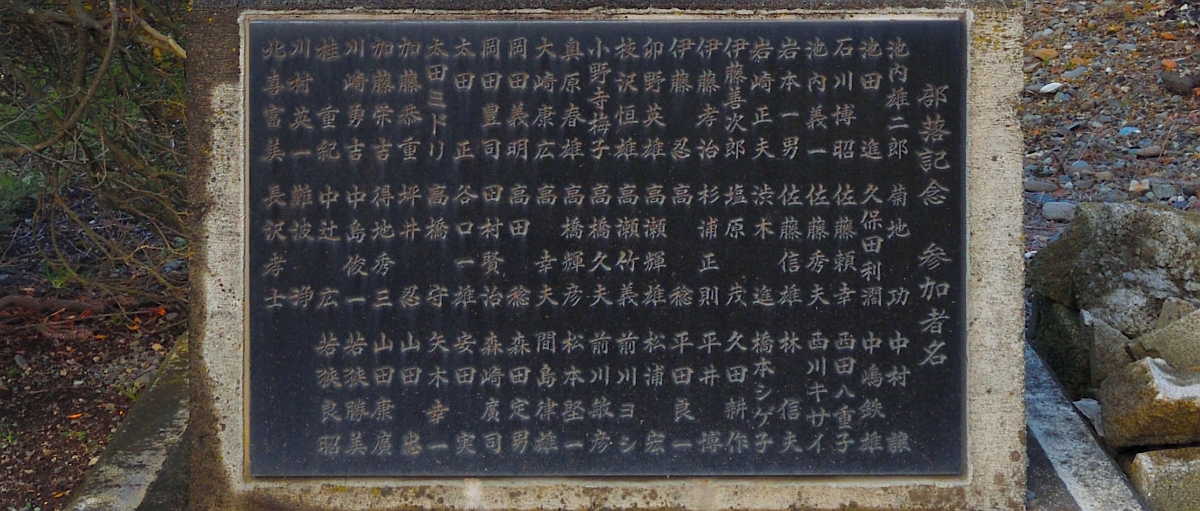 部落記念 参加者名
池内雄二郎 菊地 功 中村
池田 進 久保田利濶 中嶋鉄雄
石川博昭 佐藤頼幸 西田八重子
池内義一 佐藤秀夫 西川キサイ
岩本一男 佐藤信雄 林 信夫
岩崎正夫 渋木 進 橋本シゲ子
伊藤善次郎 塩原 茂 久田耕作
伊藤孝治 杉浦正則 平井 博
伊藤 忍 高 稔 平田良一
卯野英雄 高瀬輝雄 松浦 宏
枝沢恒雄 高瀬竹義 前川ヨシ
小野寺梅子 高橋久夫 前川敏彦
奥原春雄 高橋輝彦 松本堅一
大崎康広 高 幸夫 間島律雄
岡田義明 高田 稔 森田定男
岡田豊司 田村賢治 森崎廣司
太田 正 谷口一雄 安田 実
太田ミドリ 高橋 守 矢木幸一
加藤恭重 坪井 忍 山田 忠
加藤栄吉 得地秀三 山田康廣
川崎勇吉 中島俊一 若狭勝美
桂 重紀 中辻 広 若狭良昭
川村英一 難波 静
北喜富美 長沢孝士